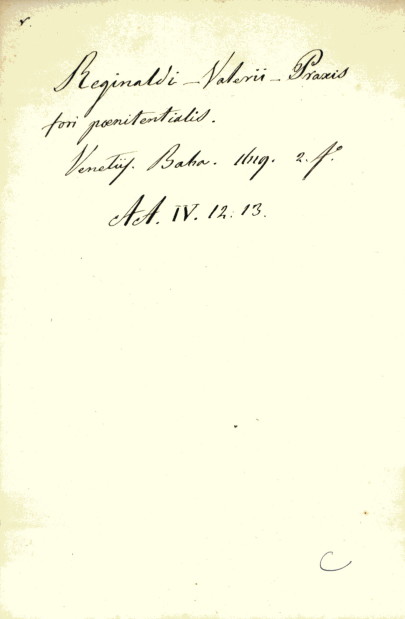 r.
Reginaldi – Valerii – Praxis
fori pœnitentialis.
Venetijs. Baba. 1619. 2. f.º
AA. IV. 12. 13.
C